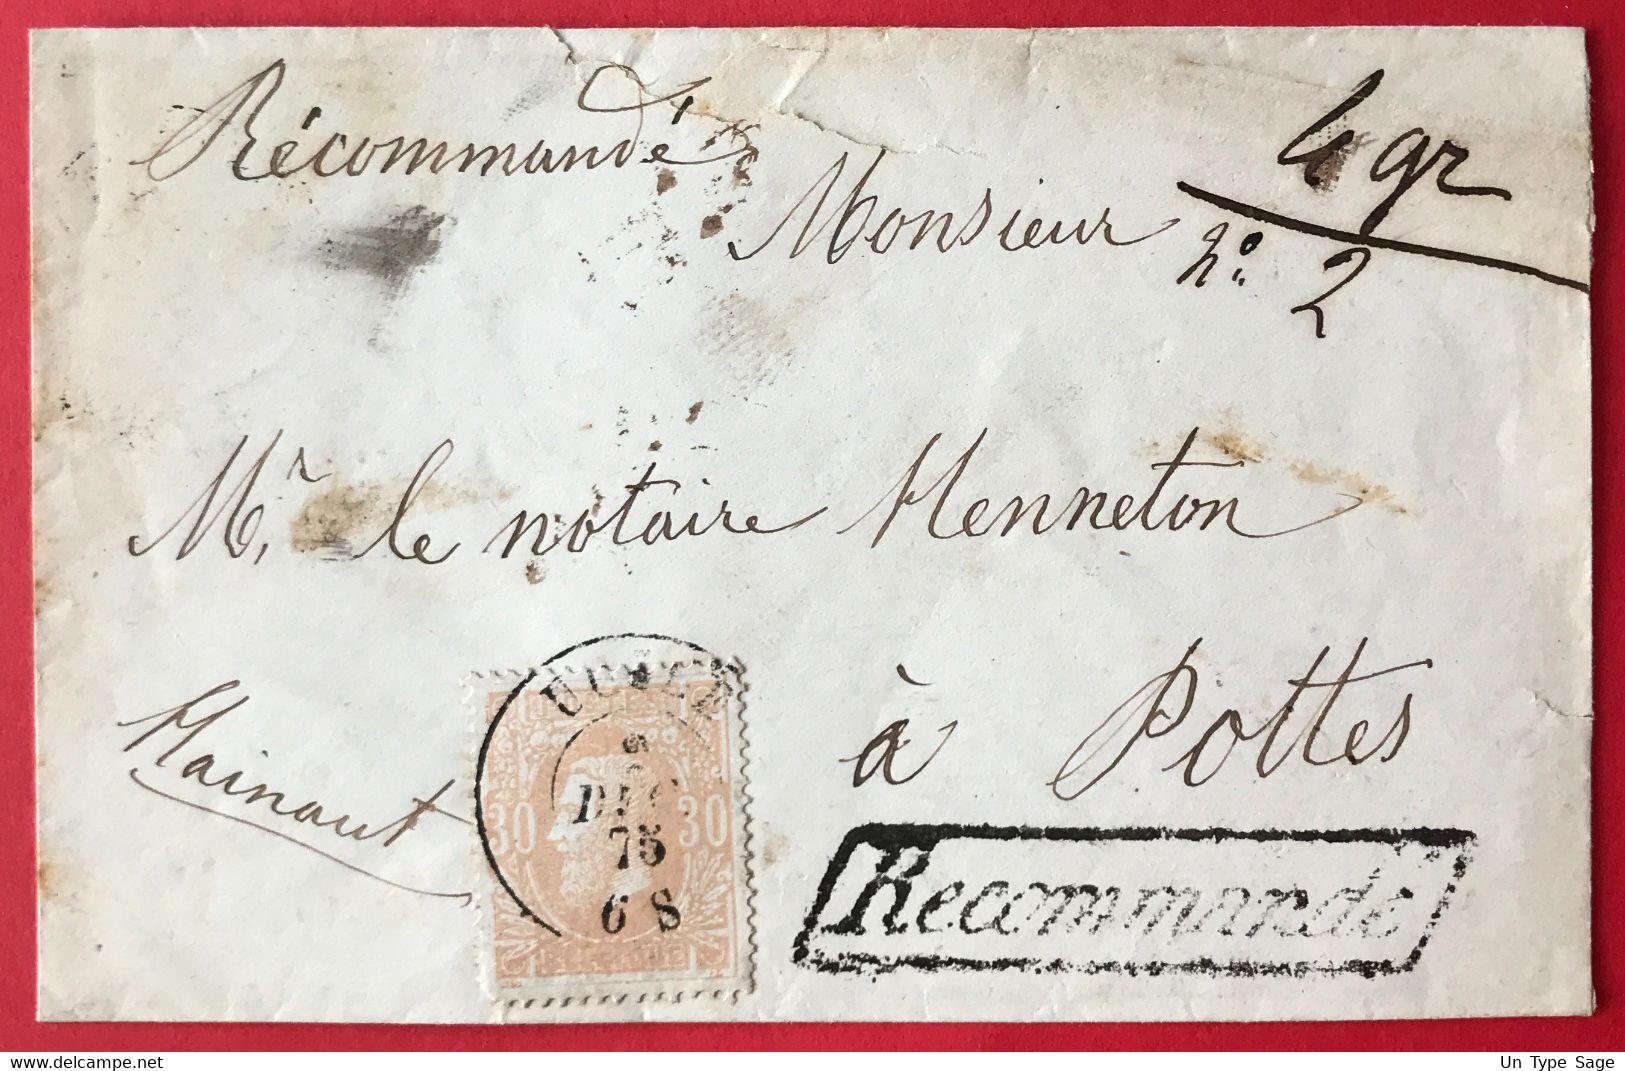 Récommandé
4 gr
Monsieur
No. 2
Mr. le notaire Henneton
à Pottes
Hainaut
DEC
30 75 30
6 S
Recommandé
delcampe.net
Un Type Sage